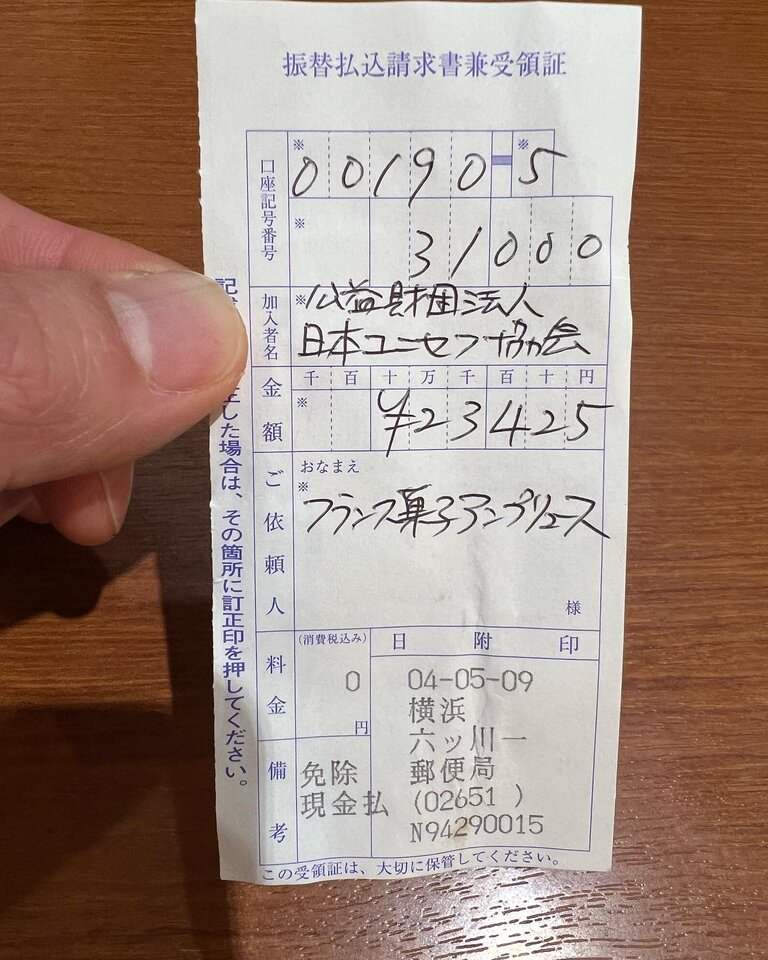 振替払込請求書兼受領証
口座記号番号
※ 00190-※5
※ 31000
加入者名
※公益財団法人
日本ユニセフ協会
金額
千 百 十 万 千 百 十 円
※ ¥23425
ご依頼人
おなまえ
※
フランス菓子アンプリュース
様
料金
(消費税込み)
0
円
日附印
04-05-09
横浜
六ッ川一
郵便局
(02651 )
N94290015
備考
免除
現金払
この受領証は、大切に保管してください。
した場合は、その箇所に訂正印を押してください。